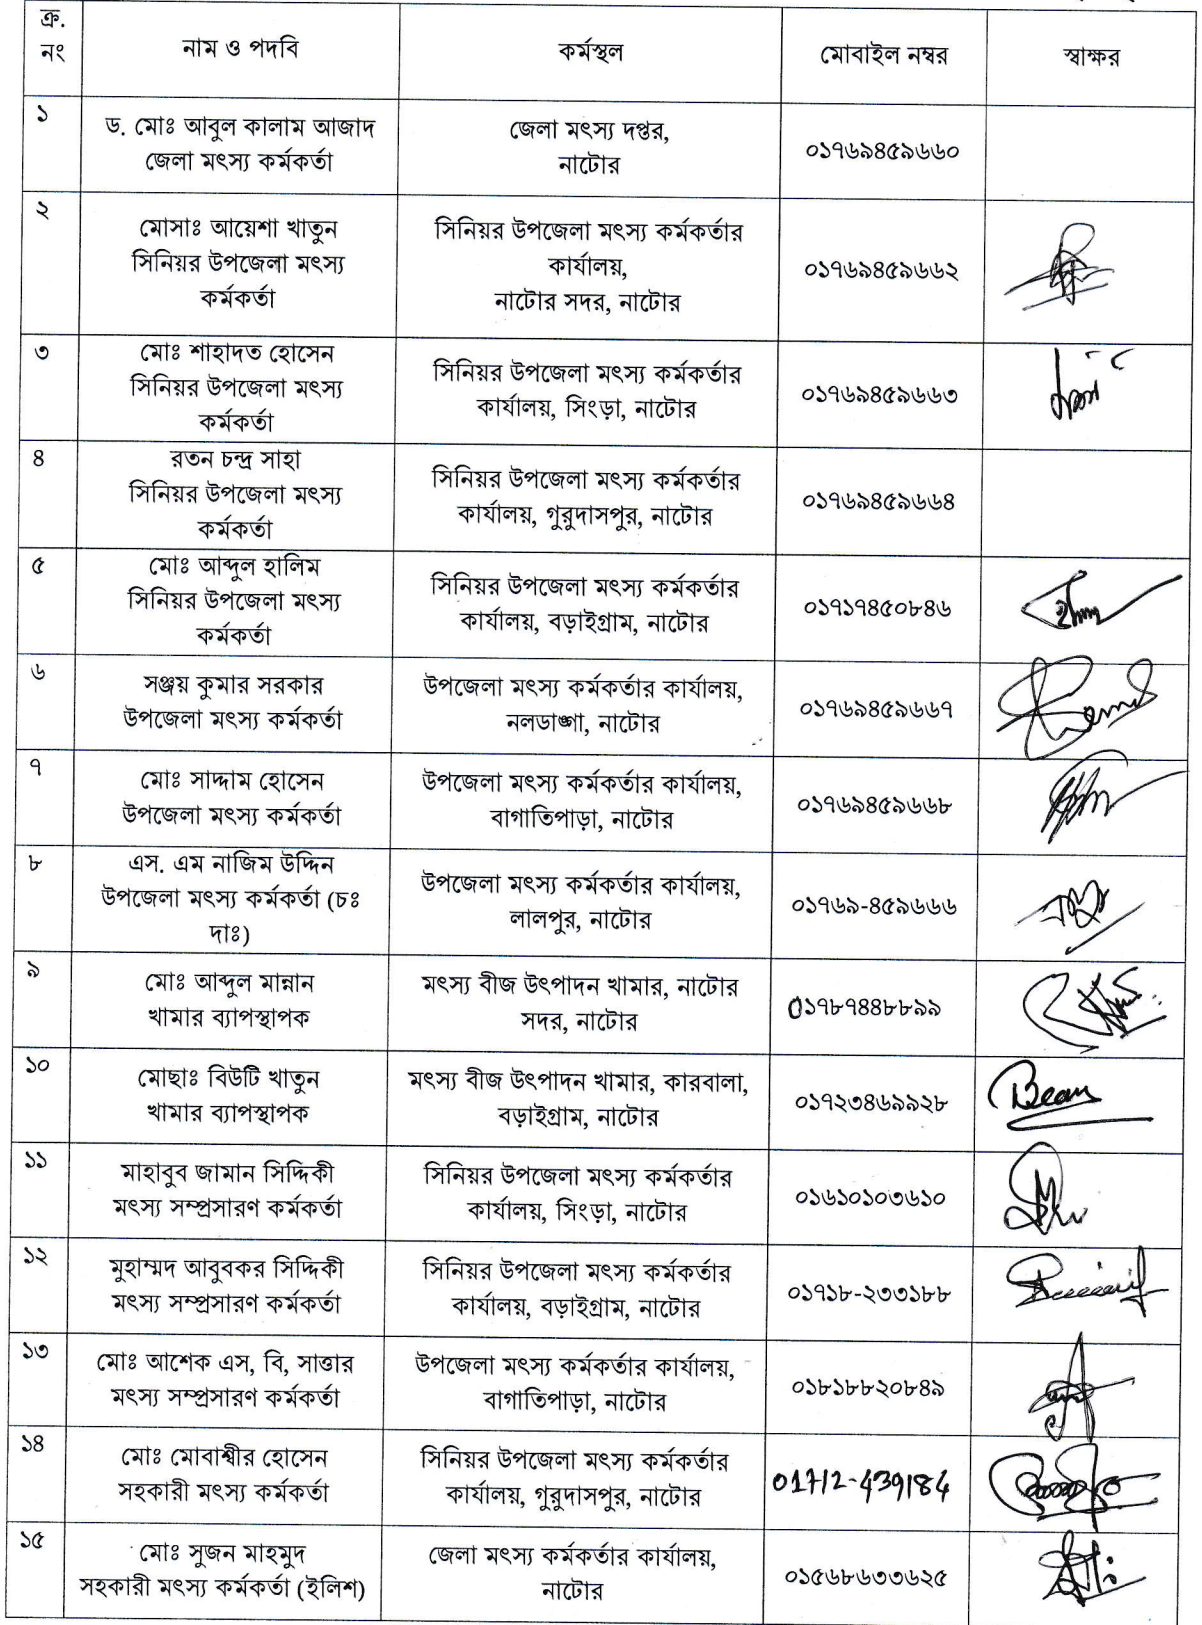 ক্র.
নং
নাম ও পদবি
কর্মস্থল
মোবাইল নম্বর
স্বাক্ষর
১
ড. মোঃ আবুল কালাম আজাদ
জেলা মৎস্য কর্মকর্তা
জেলা মৎস্য দপ্তর,
নাটোর
০১৭৬৯৪৫৯৬৬০
২
মোসাঃ আয়েশা খাতুন
সিনিয়র উপজেলা মৎস্য
কর্মকর্তা
সিনিয়র উপজেলা মৎস্য কর্মকর্তার
কার্যালয়,
নাটোর সদর, নাটোর
০১৭৬৯৪৫৯৬৬২
৩
মোঃ শাহাদত হোসেন
সিনিয়র উপজেলা মৎস্য
কর্মকর্তা
সিনিয়র উপজেলা মৎস্য কর্মকর্তার
কার্যালয়, সিংড়া, নাটোর
০১৭৬৯৪৫৯৬৬৩
৪
রতন চন্দ্র সাহা
সিনিয়র উপজেলা মৎস্য
কর্মকর্তা
সিনিয়র উপজেলা মৎস্য কর্মকর্তার
কার্যালয়, গুরুদাসপুর, নাটোর
০১৭৬৯৪৫৯৬৬৪
৫
মোঃ আব্দুল হালিম
সিনিয়র উপজেলা মৎস্য
কর্মকর্তা
সিনিয়র উপজেলা মৎস্য কর্মকর্তার
কার্যালয়, বড়াইগ্রাম, নাটোর
০১৭১৭৪৫০৮৪৬
৬
সঞ্জয় কুমার সরকার
উপজেলা মৎস্য কর্মকর্তা
উপজেলা মৎস্য কর্মকর্তার কার্যালয়,
নলডাঙ্গা, নাটোর
০১৭৬৯৪৫৯৬৬৭
৭
মোঃ সাদ্দাম হোসেন
উপজেলা মৎস্য কর্মকর্তা
উপজেলা মৎস্য কর্মকর্তার কার্যালয়,
বাগাতিপাড়া, নাটোর
০১৭৬৯৪৫৯৬৬৮
৮
এস. এম নাজিম উদ্দিন
উপজেলা মৎস্য কর্মকর্তা (চঃ
দাঃ)
উপজেলা মৎস্য কর্মকর্তার কার্যালয়,
লালপুর, নাটোর
০১৭৬৯-৪৫৯৬৬৬
৯
মোঃ আব্দুল মান্নান
খামার ব্যাপস্থাপক
মৎস্য বীজ উৎপাদন খামার, নাটোর
সদর, নাটোর
0১৭৮৭৪৪৮৮৯৯
১০
মোছাঃ বিউটি খাতুন
খামার ব্যাপস্থাপক
মৎস্য বীজ উৎপাদন খামার, কারবালা,
বড়াইগ্রাম, নাটোর
০১৭২৩৪৬৯৯২৮
১১
মাহাবুব জামান সিদ্দিকী
মৎস্য সম্প্রসারণ কর্মকর্তা
সিনিয়র উপজেলা মৎস্য কর্মকর্তার
কার্যালয়, সিংড়া, নাটোর
০১৬১০১০৩৬১০
১২
মুহাম্মদ আবুবকর সিদ্দিকী
মৎস্য সম্প্রসারণ কর্মকর্তা
সিনিয়র উপজেলা মৎস্য কর্মকর্তার
কার্যালয়, বড়াইগ্রাম, নাটোর
০১৭১৮-২৩৩১৮৮
১৩
মোঃ আশেক এস, বি, সাত্তার
মৎস্য সম্প্রসারণ কর্মকর্তা
উপজেলা মৎস্য কর্মকর্তার কার্যালয়,
বাগাতিপাড়া, নাটোর
০১৮১৮৮২০৮৪৯
১৪
মোঃ মোবাশ্বীর হোসেন
সহকারী মৎস্য কর্মকর্তা
সিনিয়র উপজেলা মৎস্য কর্মকর্তার
কার্যালয়, গুরুদাসপুর, নাটোর
01712-439184
১৫
মোঃ সুজন মাহমুদ
সহকারী মৎস্য কর্মকর্তা (ইলিশ)
জেলা মৎস্য কর্মকর্তার কার্যালয়,
নাটোর
০১৫৬৮৬৩৩৬২৫